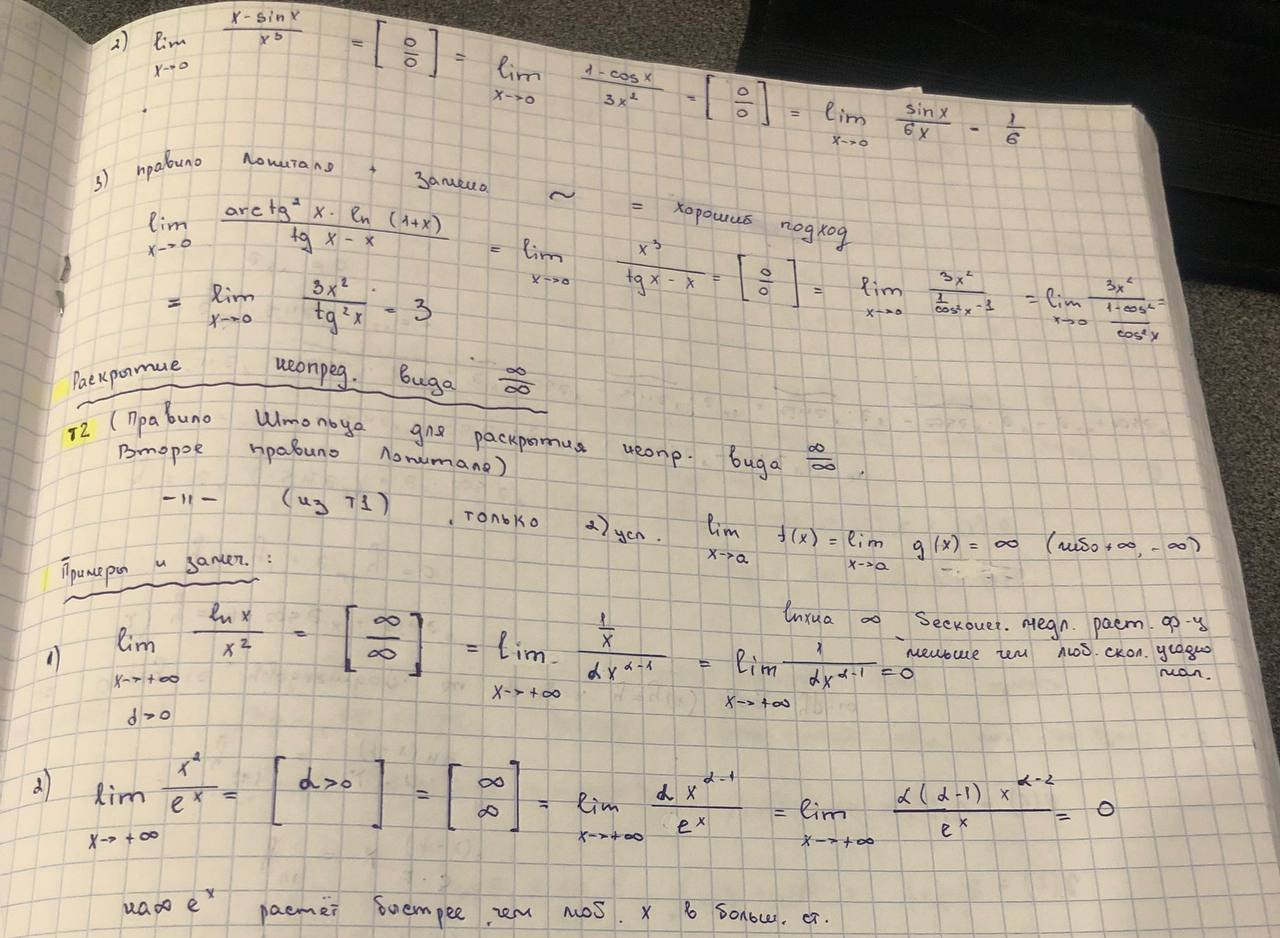 2) lim x→0 (x - sin x)/x³ = [0/0] = lim x→0 (1 - cos x)/3x² = [0/0] = lim x→0 sin x/6x - 1/6
3) правило Лопиталя + замена ~ = хороший подход
lim x→0 (arctg² x · ln (1+x))/(tg x - x) = lim x→0 x³/(tg x - x) = [0/0] = lim x→0 3x²/(1/cos²x - 1) = lim x→0 3x²/((1 - cos²)/cos²x) =
= lim x→0 3x²/tg²x = 3
Раскрытие неопред. вида ∞/∞
т2 (Правило Штольца для раскрытия неопр. вида ∞/∞.
Второе правило Лопиталя)
-||- (из т1), только 2) усл. lim x→a f(x) = lim x→a g(x) = ∞ (либо +∞, -∞)
Примеры и замеч.:
1) lim x→+∞ α>0 ln x/x^α = [∞/∞] = lim x→+∞ (1/x)/(αx^(α-1)) = lim x→+∞ 1/(αx^(α-1)) = 0
lnx на ∞ бесконеч. медл. раст. ф-ц
меньше чем люб. скол. угодно
мал.
2) lim x→+∞ x^α/e^x = [α>0] = [∞ ∞] = lim x→+∞ αx^(α-1)/e^x = lim x→+∞ α(α-1)x^(α-2)/e^x = 0
на ∞ e^x растёт быстрее, чем люб. x в больш. ст.